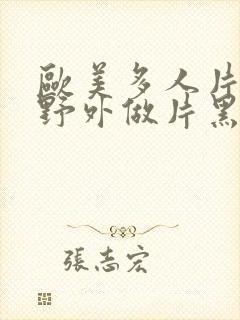 歐美多人片
野外做片黑
張志宏